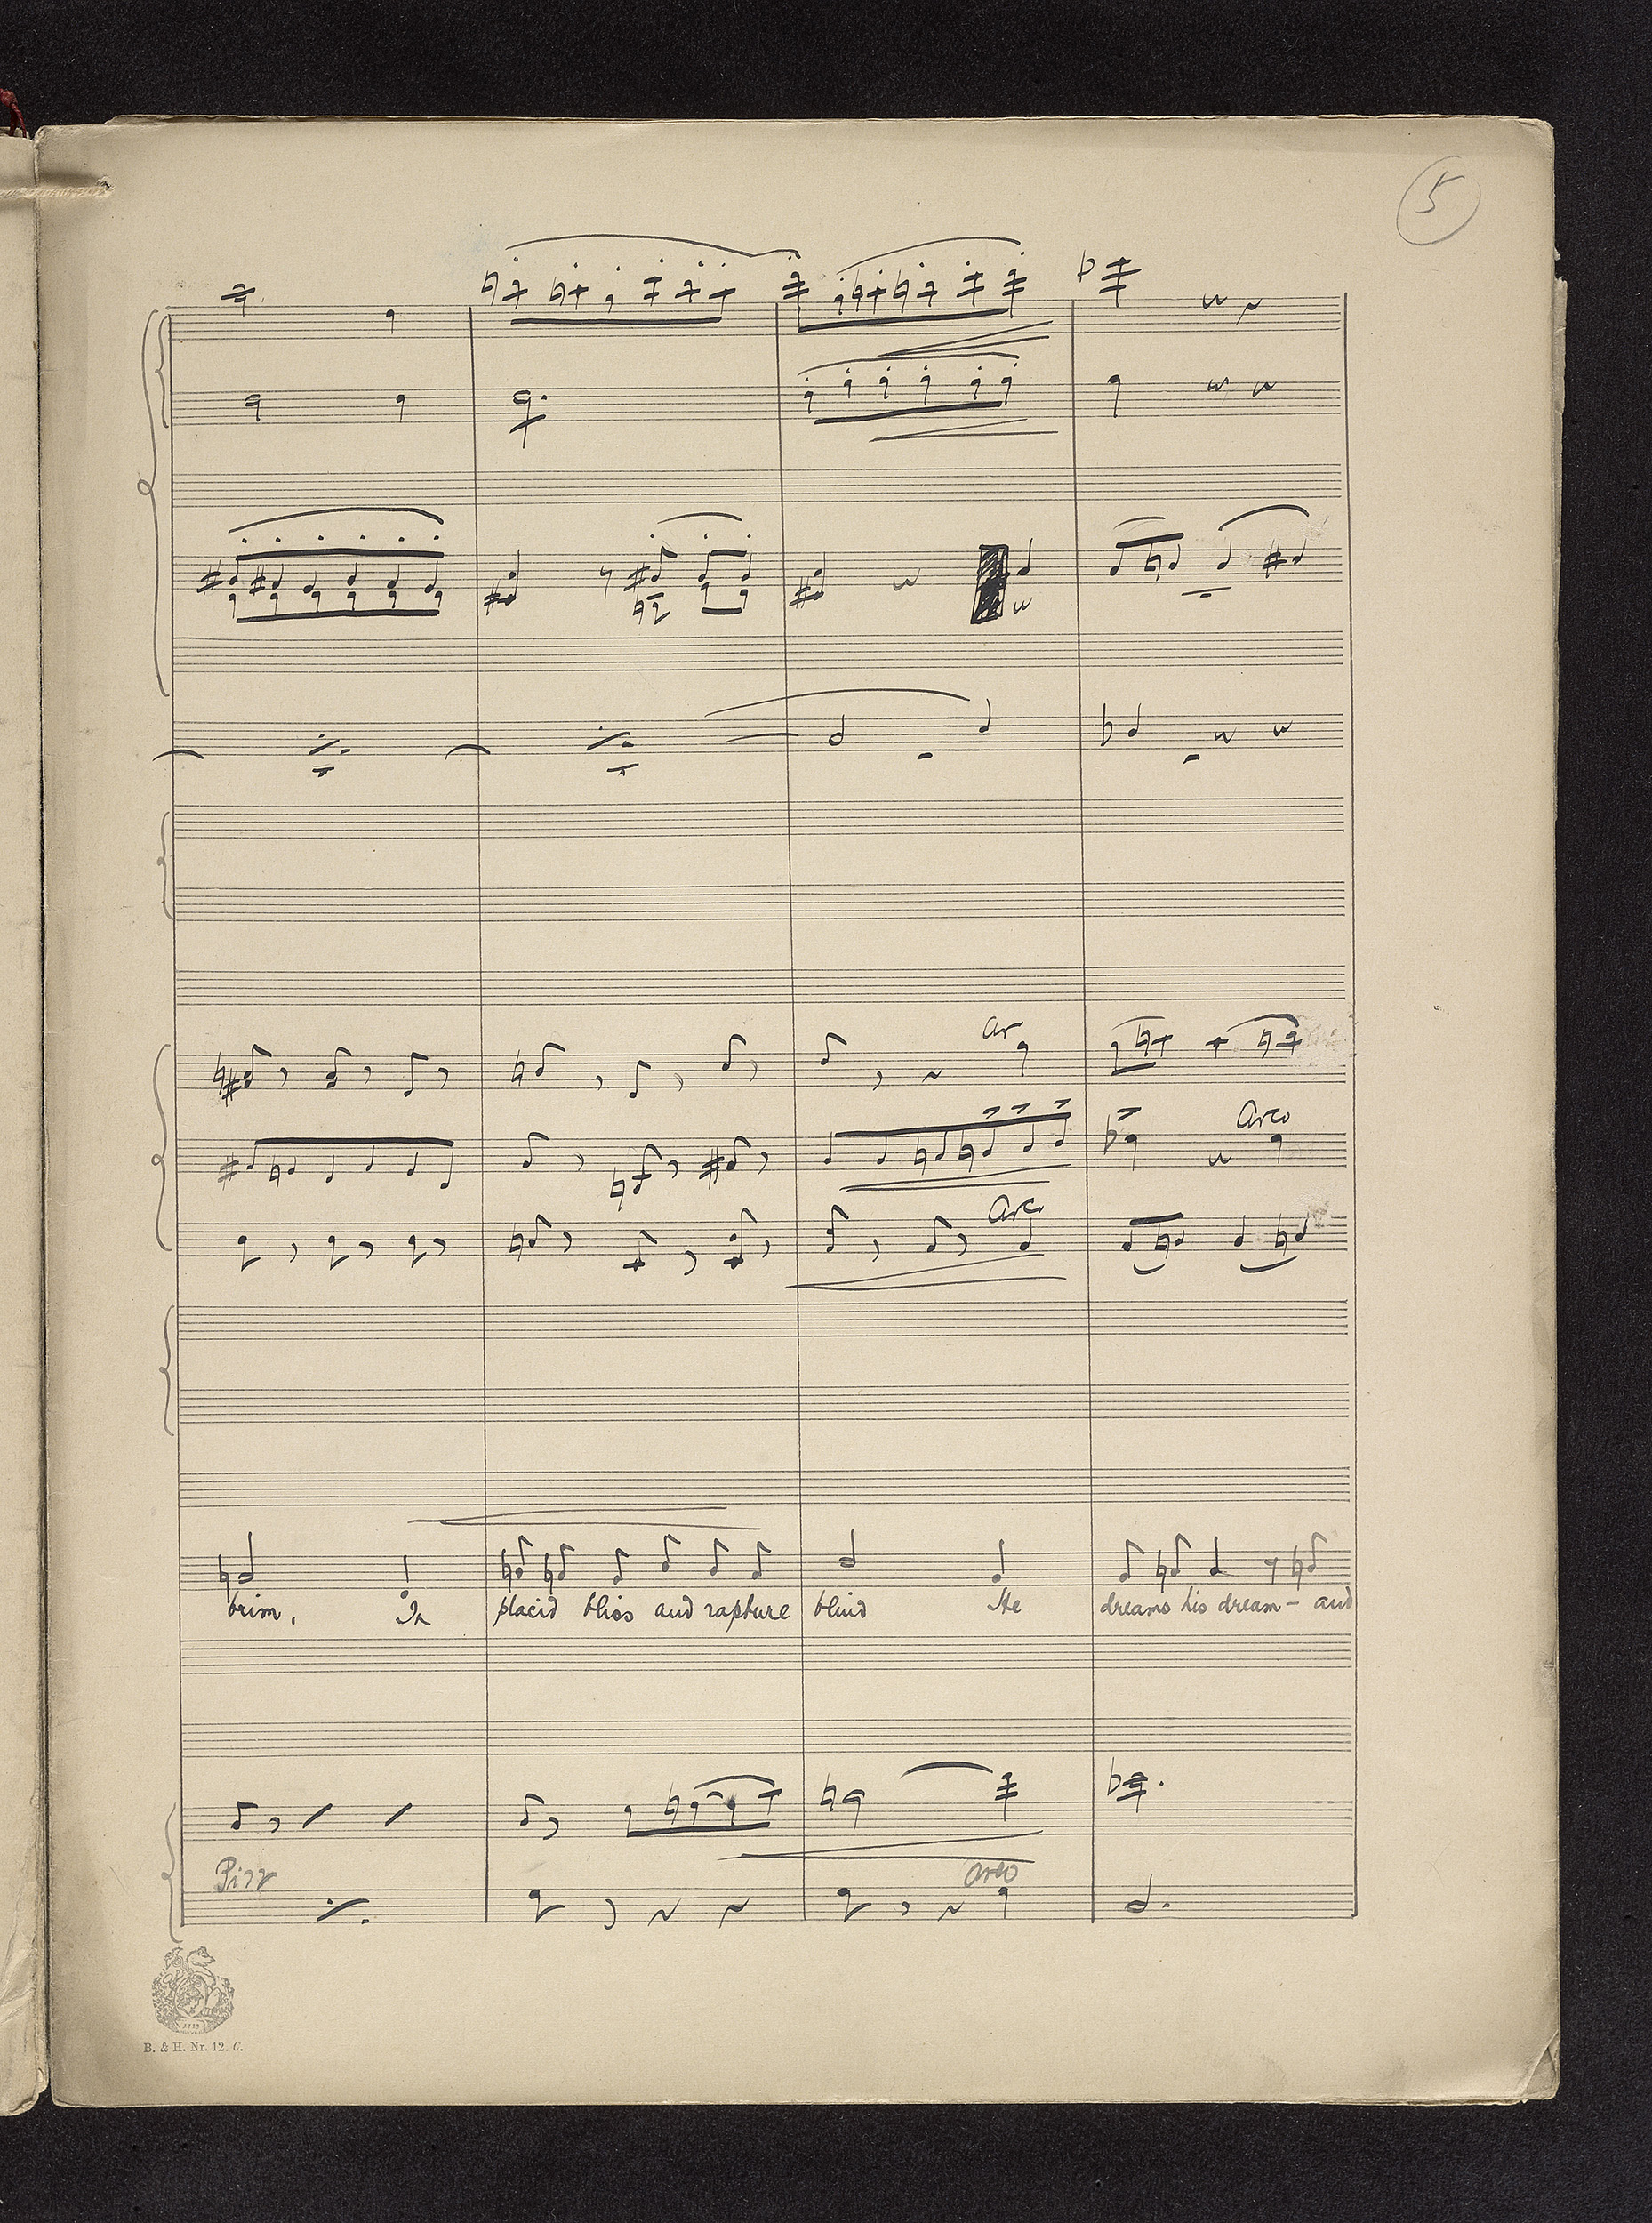 5
Ar
Arco
Arco
brim. In placid bliss and rapture blind He dreams his dream - and
Pizz
arco
B. & H. Nr. 12. C.